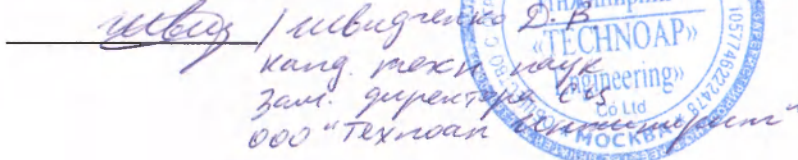 / Швидченко Д. В
канд. техн наук
Зам. директора СЦ
ООО "Техноап Инжиниринг"
«TECHNOAP»
Engineering»
Co Ltd
МОСКВА